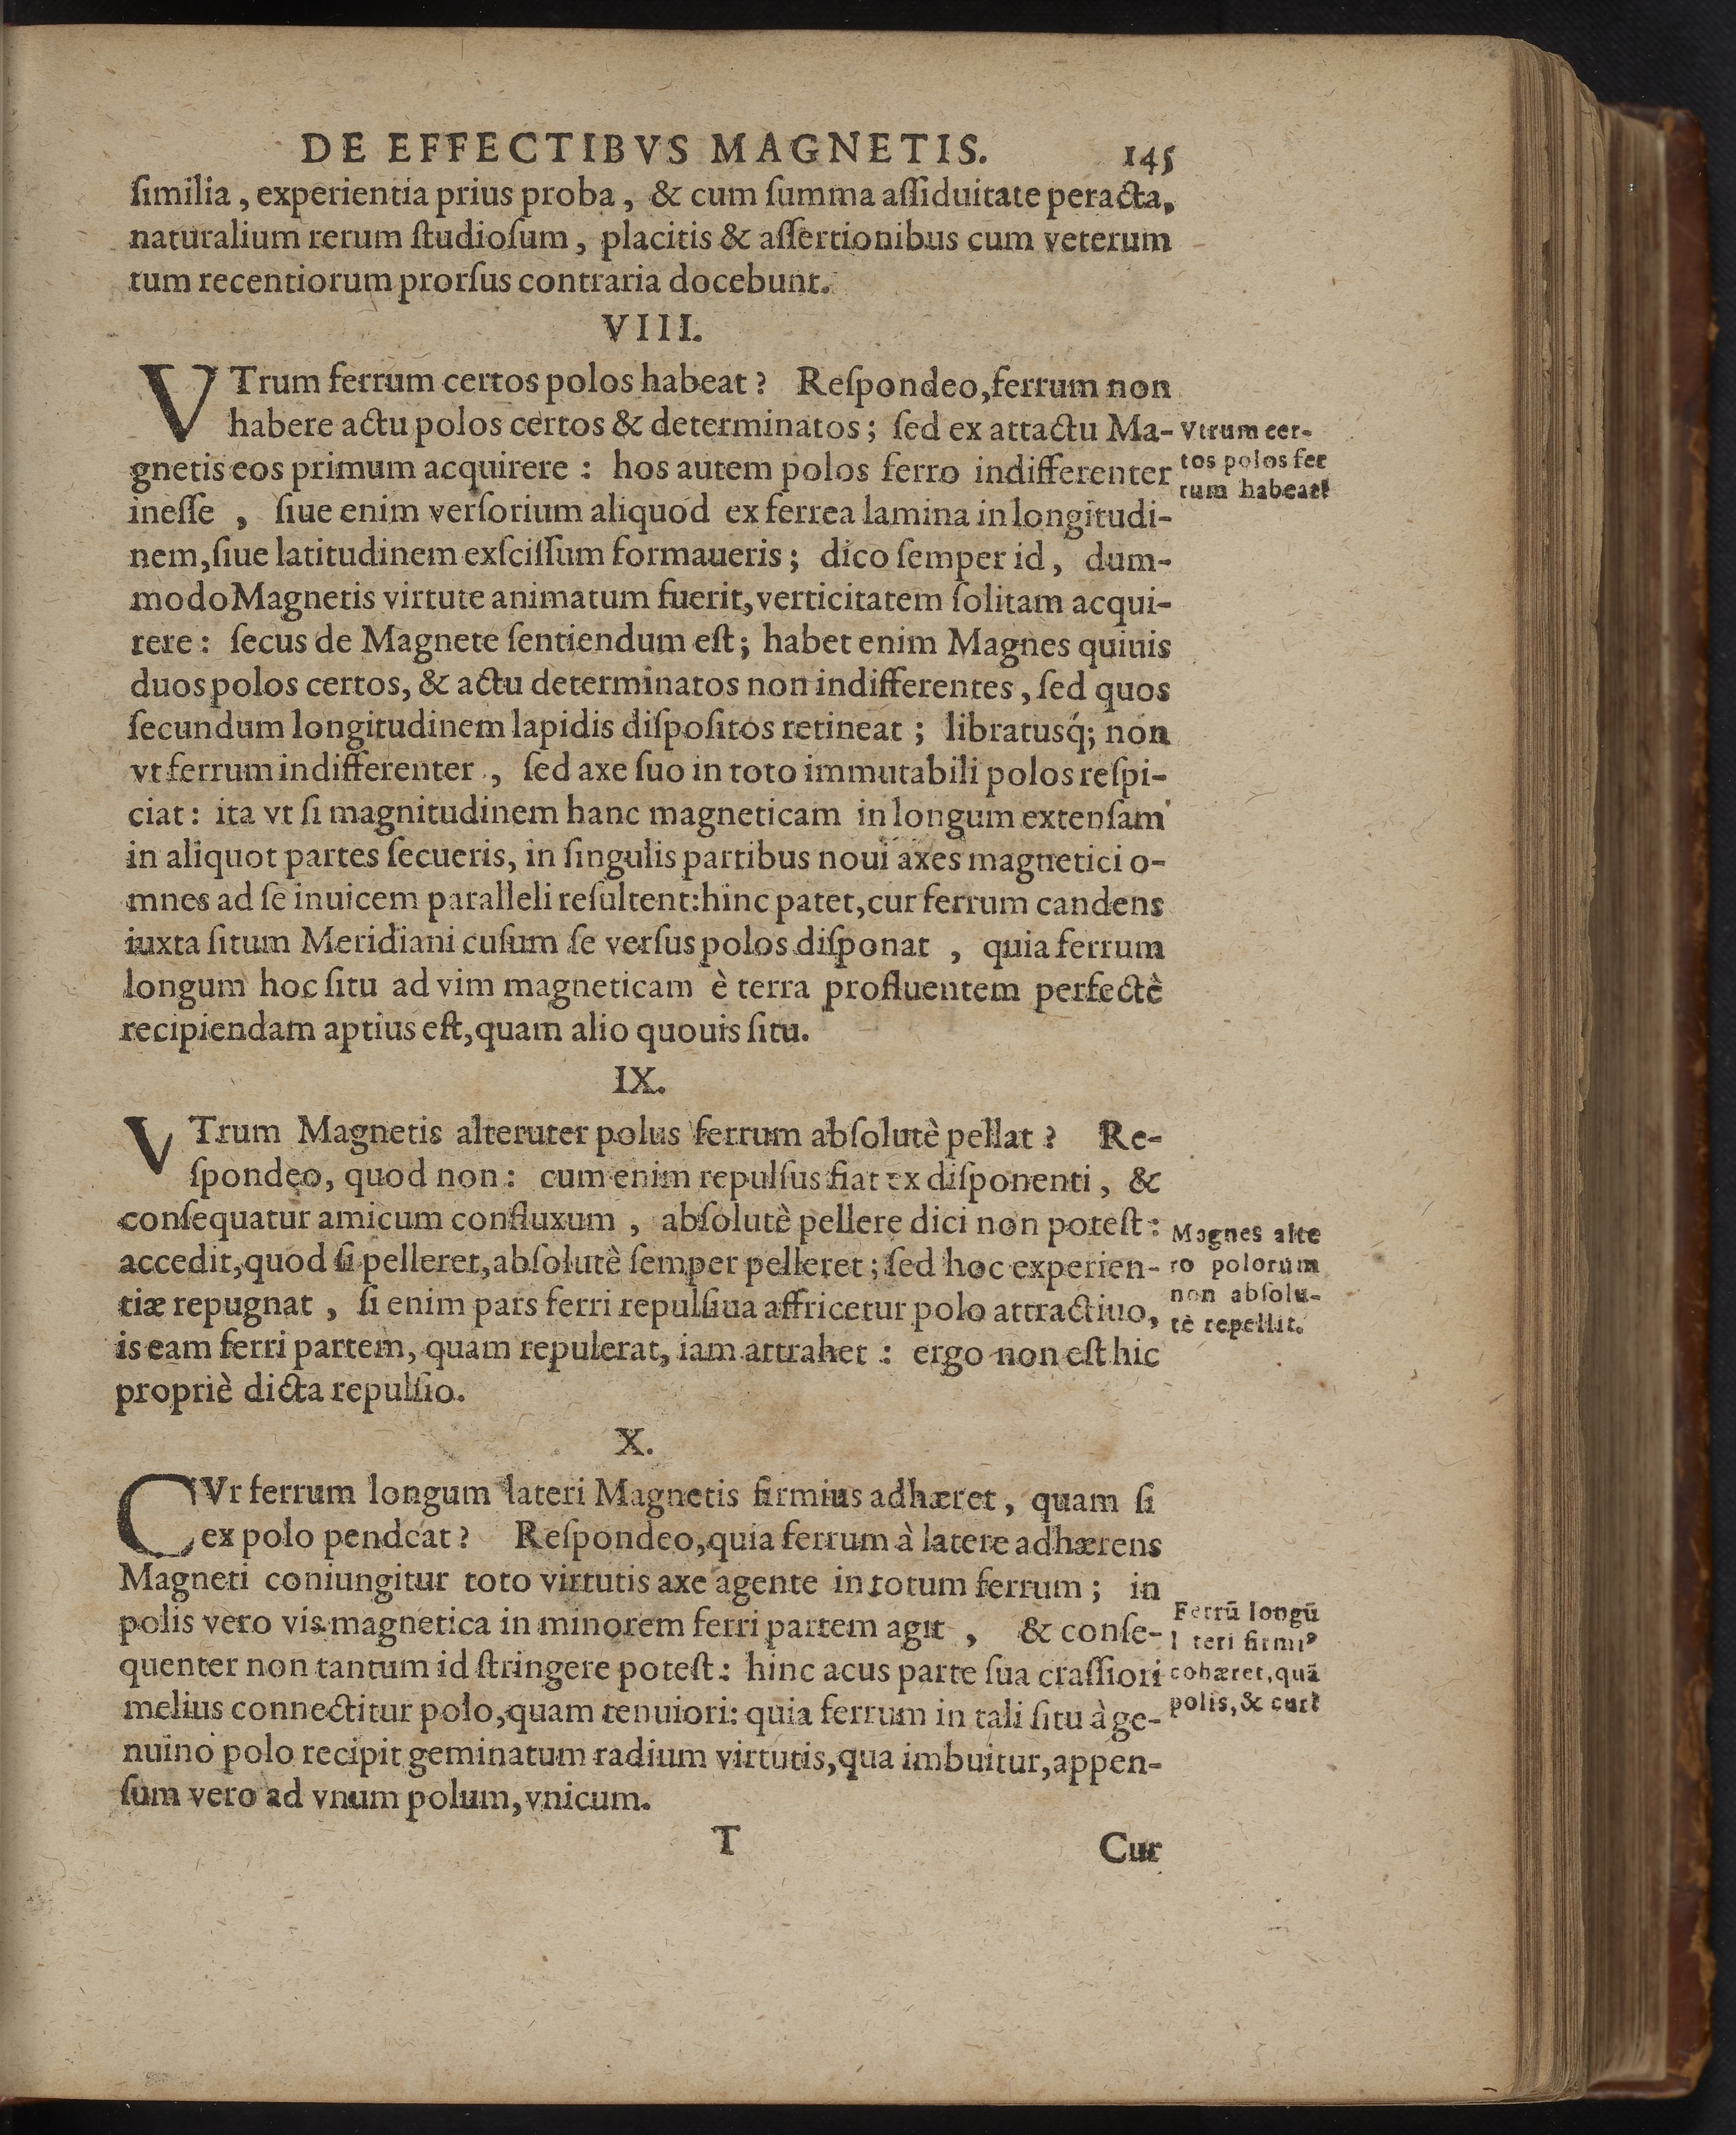 DE EFFECTIBVS MAGNETIS. 145
ſimilia, experientia prius proba, & cum ſumma aſſiduitate peracta,
naturalium rerum ſtudioſum, placitis & aſſertionibus cum veterum
tum recentiorum prorſus contraria docebunt.
VIII.
VTrum ferrum certos polos habeat? Reſpondeo, ferrum non
habere actu polos certos & determinatos; ſed ex attactu Ma-
gnetis eos primum acquirere: hos autem polos ferro indifferenter
ineſſe, ſiue enim verſorium aliquod ex ferrea lamina in longitudi-
nem, ſiue latitudinem exſciſſum formaueris; dico ſemper id, dum-
modo Magnetis virtute animatum fuerit, verticitatem ſolitam acqui-
rere: ſecus de Magnete ſentiendum eſt; habet enim Magnes quiuis
duos polos certos, & actu determinatos non indifferentes, ſed quos
ſecundum longitudinem lapidis diſpoſitos retineat; libratusq́; non
vt ferrum indifferenter, ſed axe ſuo in toto immutabili polos reſpi-
ciat: ita vt ſi magnitudinem hanc magneticam in longum extenſam
in aliquot partes ſecueris, in ſingulis partibus noui axes magnetici o-
mnes ad ſe inuicem paralleli reſultent: hinc patet, cur ferrum candens
iuxta ſitum Meridiani cuſum ſe verſus polos diſponat, quia ferrum
longum hoc ſitu ad vim magneticam è terra profluentem perfectè
recipiendam aptius eſt, quam alio quouis ſitu.
Vtrum cer-
tos polos fer
rum habeat?
IX.
VTrum Magnetis alteruter polus ferrum abſolutè pellat? Re-
ſpondeo, quod non: cum enim repulſus fiat ex diſponenti, &
conſequatur amicum confluxum, abſolutè pellere dici non poteſt:
accedit, quod ſi pelleret, abſolutè ſemper pelleret; ſed hoc experien-
tiæ repugnat, ſi enim pars ferri repulſiua affricetur polo attractiuo,
is eam ferri partem, quam repulerat, iam attrahet: ergo non eſt hic
propriè dicta repulſio.
Magnes alte
ro polorum
non abſolu-
tè repellit.
X.
CVr ferrum longum lateri Magnetis firmius adhæret, quam ſi
ex polo pendeat? Reſpondeo, quia ferrum à latere adhærens
Magneti coniungitur toto virtutis axe agente in totum ferrum; in
polis vero vis magnetica in minorem ferri partem agit, & conſe-
quenter non tantum id ſtringere poteſt: hinc acus parte ſua craſſiori
melius connectitur polo, quam tenuiori: quia ferrum in tali ſitu à ge-
nuino polo recipit geminatum radium virtutis, qua imbuitur, appen-
ſum vero ad vnum polum, vnicum.
Ferrū longū
l teri firmiꝰ
cohæret, quā
polis, & cur?
T Cur